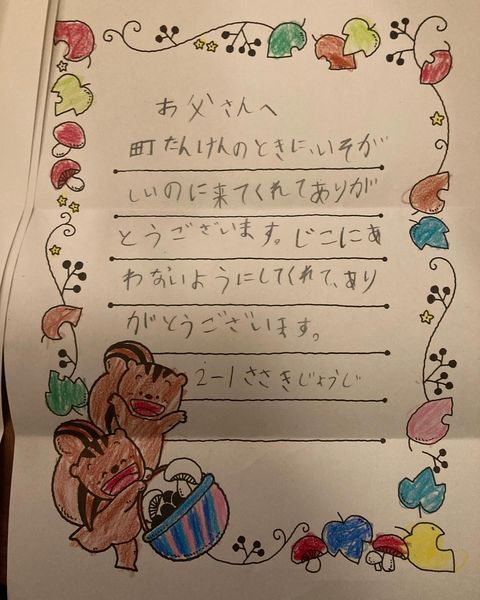 お父さんへ
町たんけんのときに、いそが
しいのに来てくれてありが
とうございます。じこにあ
わないようにしてくれて、あり
がとうございます。
2-1ささきじょうじ